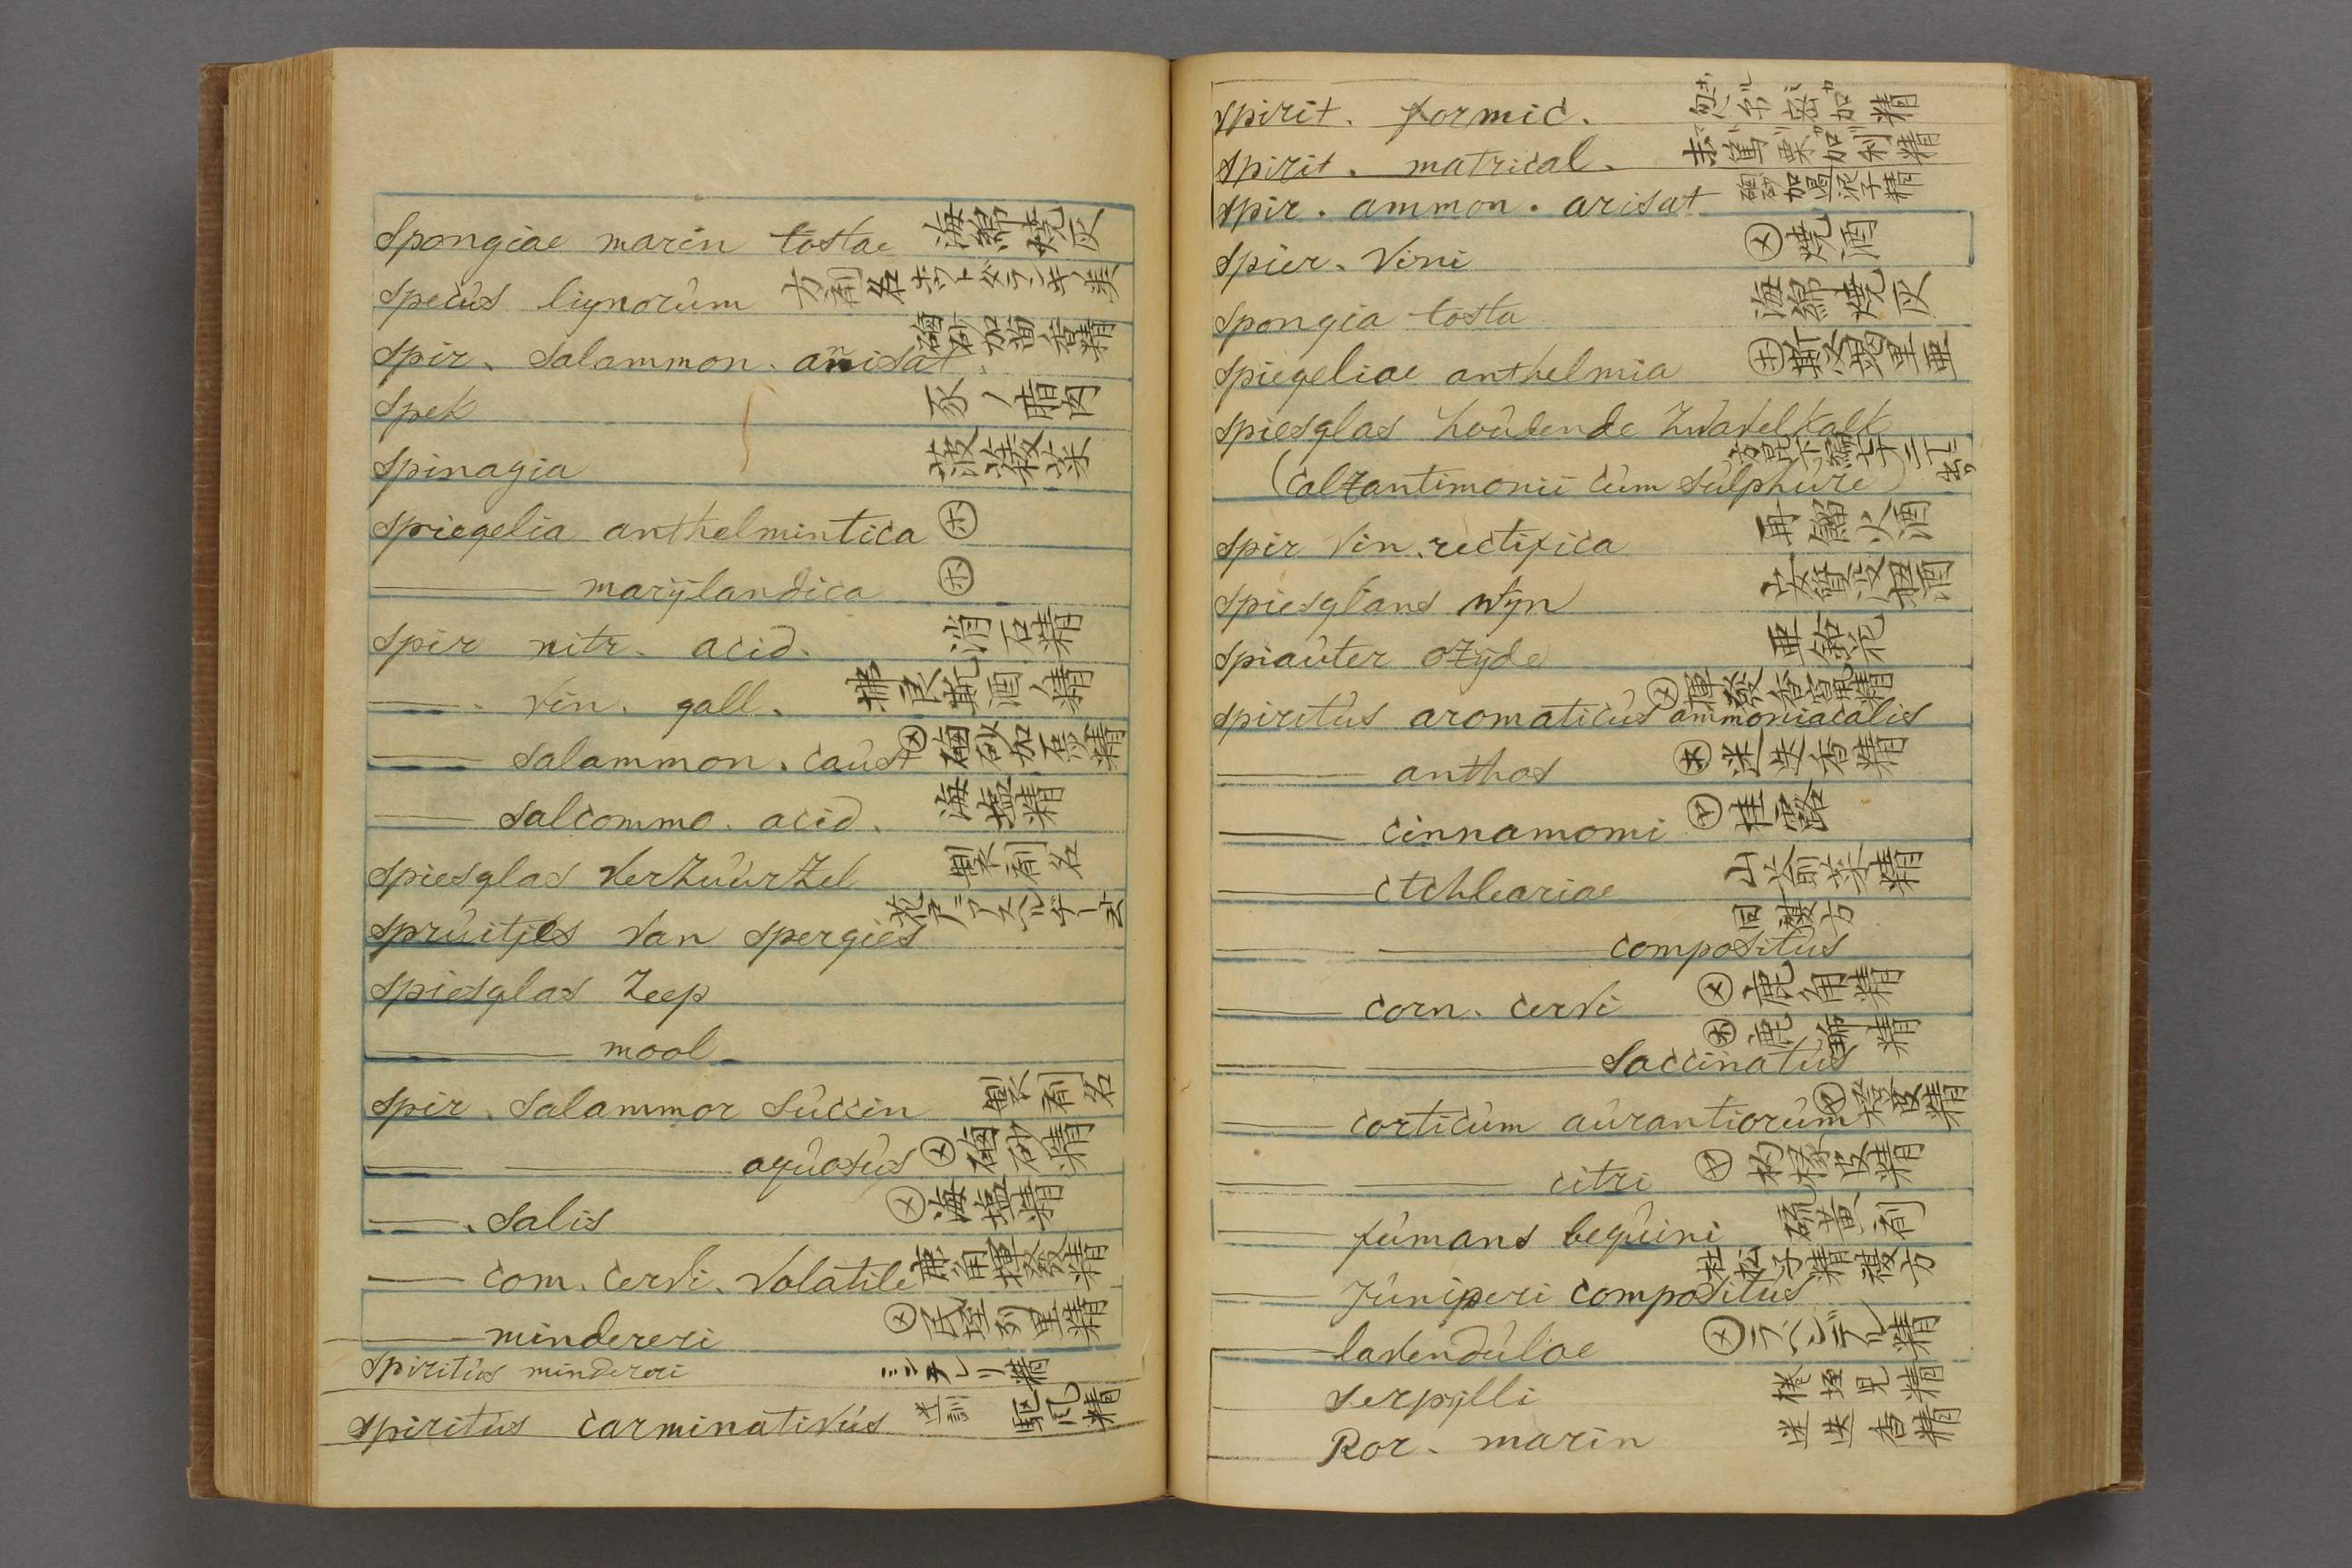 Spongiae marin tostae 海綿燒灰
Specùs lignorùm 方剤名
Spir. Salammon. anisat. 磠砂加茴香精
Spek 豕ノ腊肉
Spinagia 菠薐菜
Spiegelia anthelmintica ㋭
marÿlandica ㋭
Spir nitr. acid. 消石精
vin. gall. 拂良斯酒ノ精
Salammon. caùst ㋱ 磠砂加石灰精
Salcommo. acid. 海塩精
Spiesglas verzùùrzel 製剤名
Sprùitjes van Spergies
Spiesglas Zeep
mool
Spir. Salammor Sùccin 製剤名
aqùosùs ㋱ 磠砂精
Salis ㋱ 海塩精
corn. cervi. volatile 鹿角揮發精
mindereri ㋱ 民垤列里精
Spiritùs mindereri ミンデレリ精
Spiritùs carminativùs 駆風精
Spirit. formic. 精
Spirit. matrical. 精
Spir. ammon. arisat 精
Spier. Vini ㋱ 燒酒
Spongia tosta 海綿燒灰
Spiegeliae anthelmia
Spiesglas hoùdende Zwavelkalk
(calzantimonii cùm Sùlphùre)
Spir Vin. rectifica 再餾火酒
Spiesglans Wÿn 安質没扭酒
Spiaùter ozÿde 亜鉛花
Spiritùs aromaticùs ammoniacalis ㋱ 揮發香竄精
anthos ㋭ 迷迭香精
cinnamomi ㋳ 桂露
ctchleariae 山萮菜精
compositùs 同複方
corn. cervi ㋱ 鹿角精
Saccinatùs
corticùm aùrantiorùm 橙皮精
citri 枸櫞皮精
fùmans beqùini 硫黄剤
Jùniperi compositùs 杜松子精複方
lavendùlae ㋱ ラヘンデル精
Serpÿlli
Ror. marin 迷迭香精